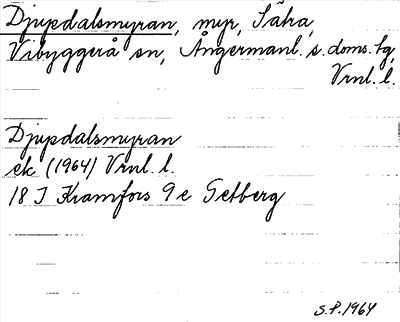 Djupdalsmyran, myr, Sälra,
Vibyggerå sn, Ångermanl. s. doms. tg,
Vrnl. l.
Djupdalsmyran
ek (1964) Vrnl. l.
18 J Kramfors 9 e Getberg
S.P. 1964